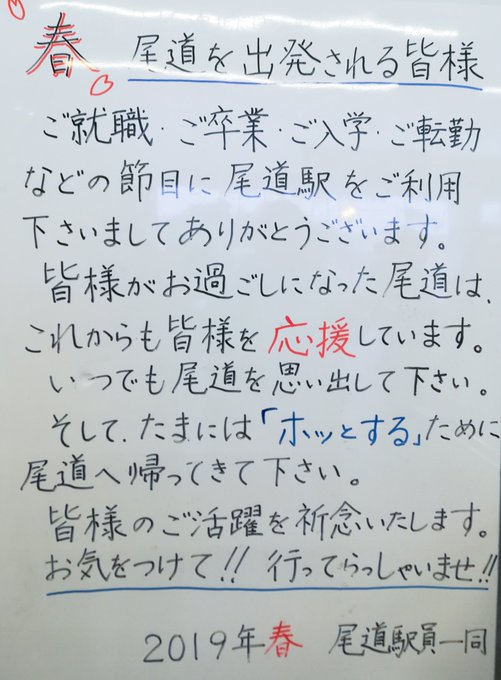 春 尾道を出発される皆様
ご就職・ご卒業・ご入学・ご転勤
などの節目に尾道駅をご利用
下さいましてありがとうございます。
皆様がお過ごしになった尾道は、
これからも皆様を応援しています。
いつでも尾道を思い出して下さい。
そして、たまには「ホッとする」ために
尾道へ帰ってきて下さい。
皆様のご活躍を祈念いたします。
お気をつけて!! 行ってらっしゃいませ!!
2019年春 尾道駅員一同